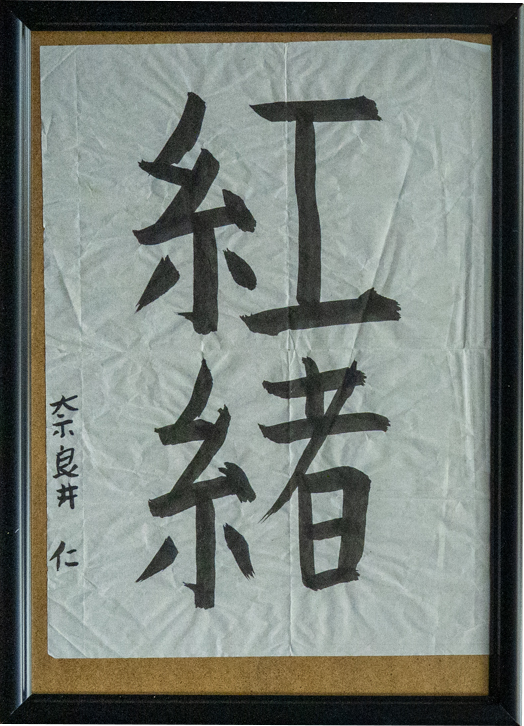 紅緒
奈良井 仁